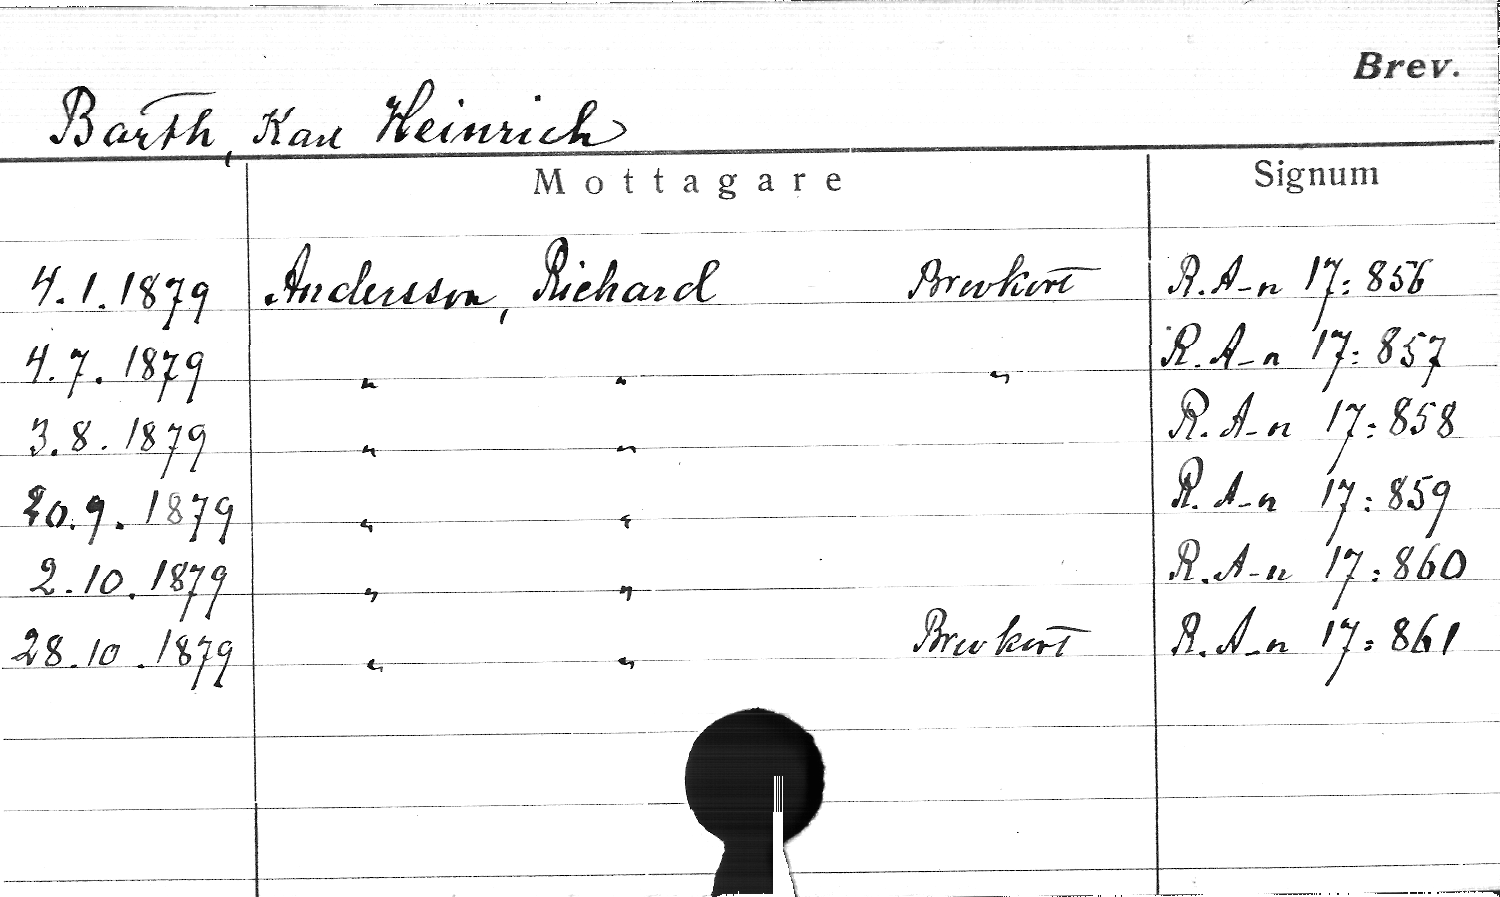 Brev.
Barth, Karl Heinrich
Mottagare Signum
4.1.1879 Andersson, Richard Brevkort R. A-n 17:856
4.7.1879 " " " R. A-n 17:857
3.8.1879 " " R. A-n 17:858
20.9.1879 " " R. A-n 17:859
2.10.1879 " " R. A-n 17:860
28.10.1879 " " Brevkort R. A-n 17:861